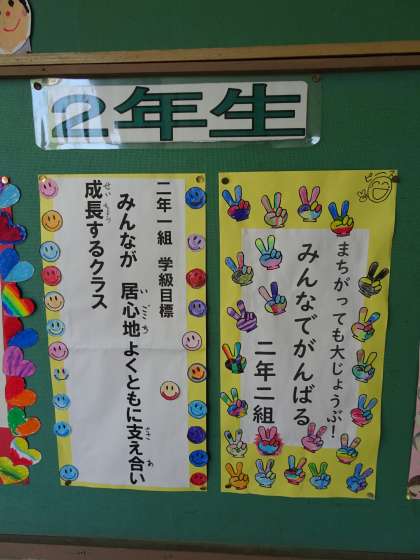 ２年生
まちがっても大じょうぶ！
みんなでがんばる
二年二組
二年一組　学級目標
みんなが　居心地よくともに支え合い
いごこち
ささ
あ
成長するクラス
せいちょう